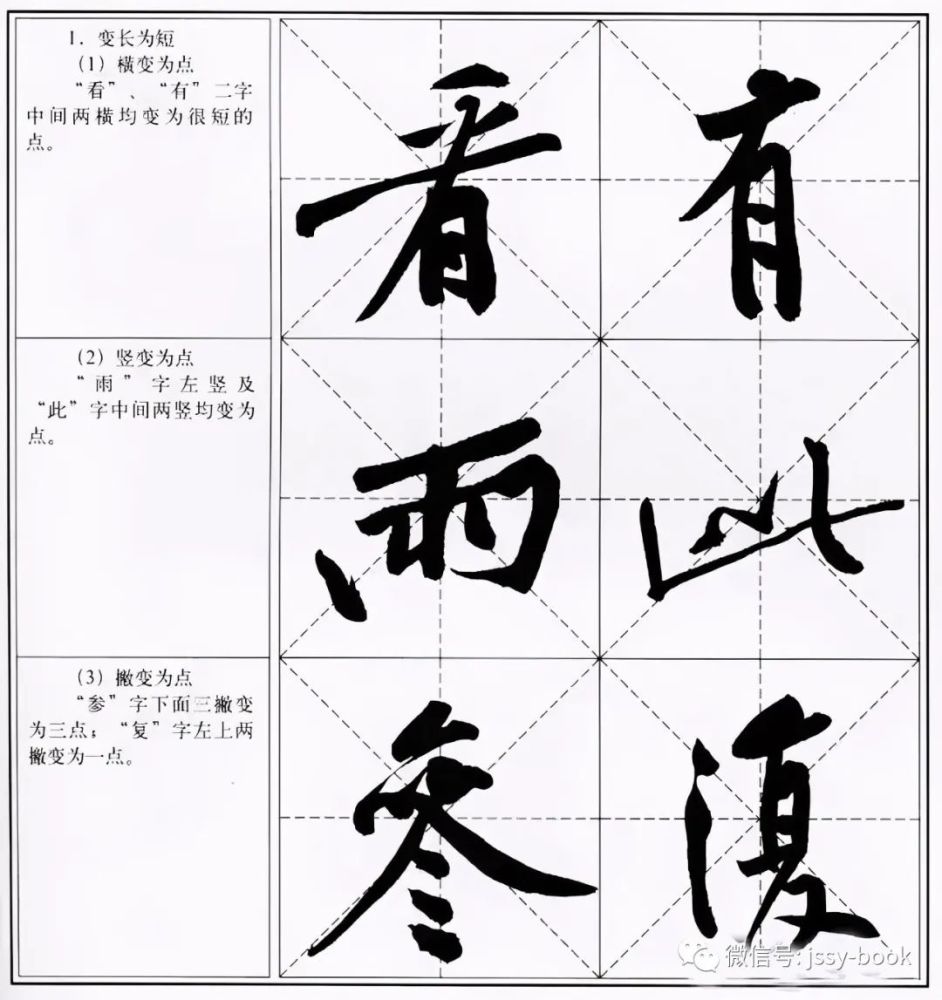 1. 变长为短
(1) 横变为点
“看”、“有”二字
中间两横均变为很短的
点。
看 有
(2) 竖变为点
“雨”字左竖及
“此”字中间两竖均变为
点。
雨 此
(3) 撇变为点
“参”字下面三撇变
为三点；“复”字左上两
撇变为一点。
参 復
微信号: jssy-book